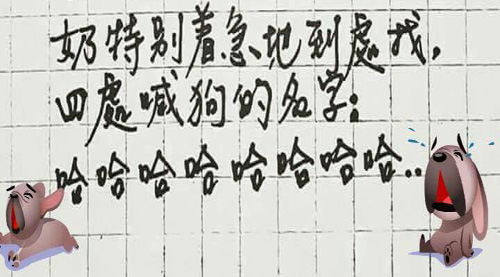 奶特别着急地到處找,
四處喊狗的名字:
哈哈哈哈哈哈哈哈..